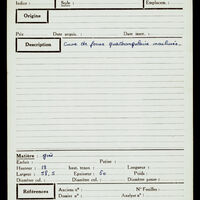 Indice : Salle : Emplacem. :
Origine
Prix Date acquis. : Date insor. :
Description Cuve de forme quadrangulaire
Matière : grès
Enfon : Patine :
Hauteur : 18 haut. totale : Longueur :
Largeur : 58,5 Epaisseur : 50 Poids :
Diamètre col. : Diamètre panse :
Références Anciens nos : No Feuilles :
Dossier no : Analyse no :